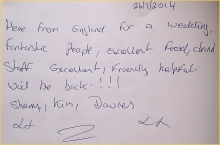 26/7/2014
Here from England for a wedding,
fantastic people, excellent food, drink
Staff Excellent, friendly helpful
will be back!!!
Kim, Davies